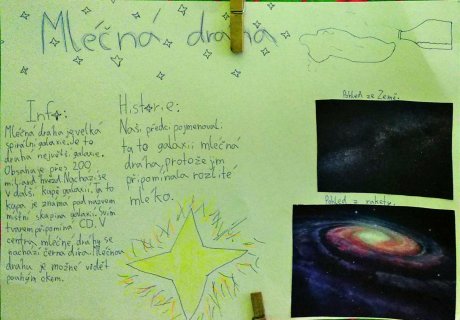 Mléčná dráha
Info:
Mléčná dráha je velká
spirální galaxie. Je to
druhá největší galaxie.
Obsahuje přes 200
miliard hvězd. Nachází se
v další kupě galaxií. Tato
kupa je známa pod názvem
místní skupina galaxií. Svým
tvarem připomíná CD. V
centru mléčné dráhy se
nachází černá díra. Mléčnou
dráhu je možné vidět
pouhým okem.
Historie:
Naši předci pojmenovali
tuto galaxii mléčná
dráha, protože jim
připomínala rozlité
mléko.
Pohled ze Země.
Pohled z rakety.